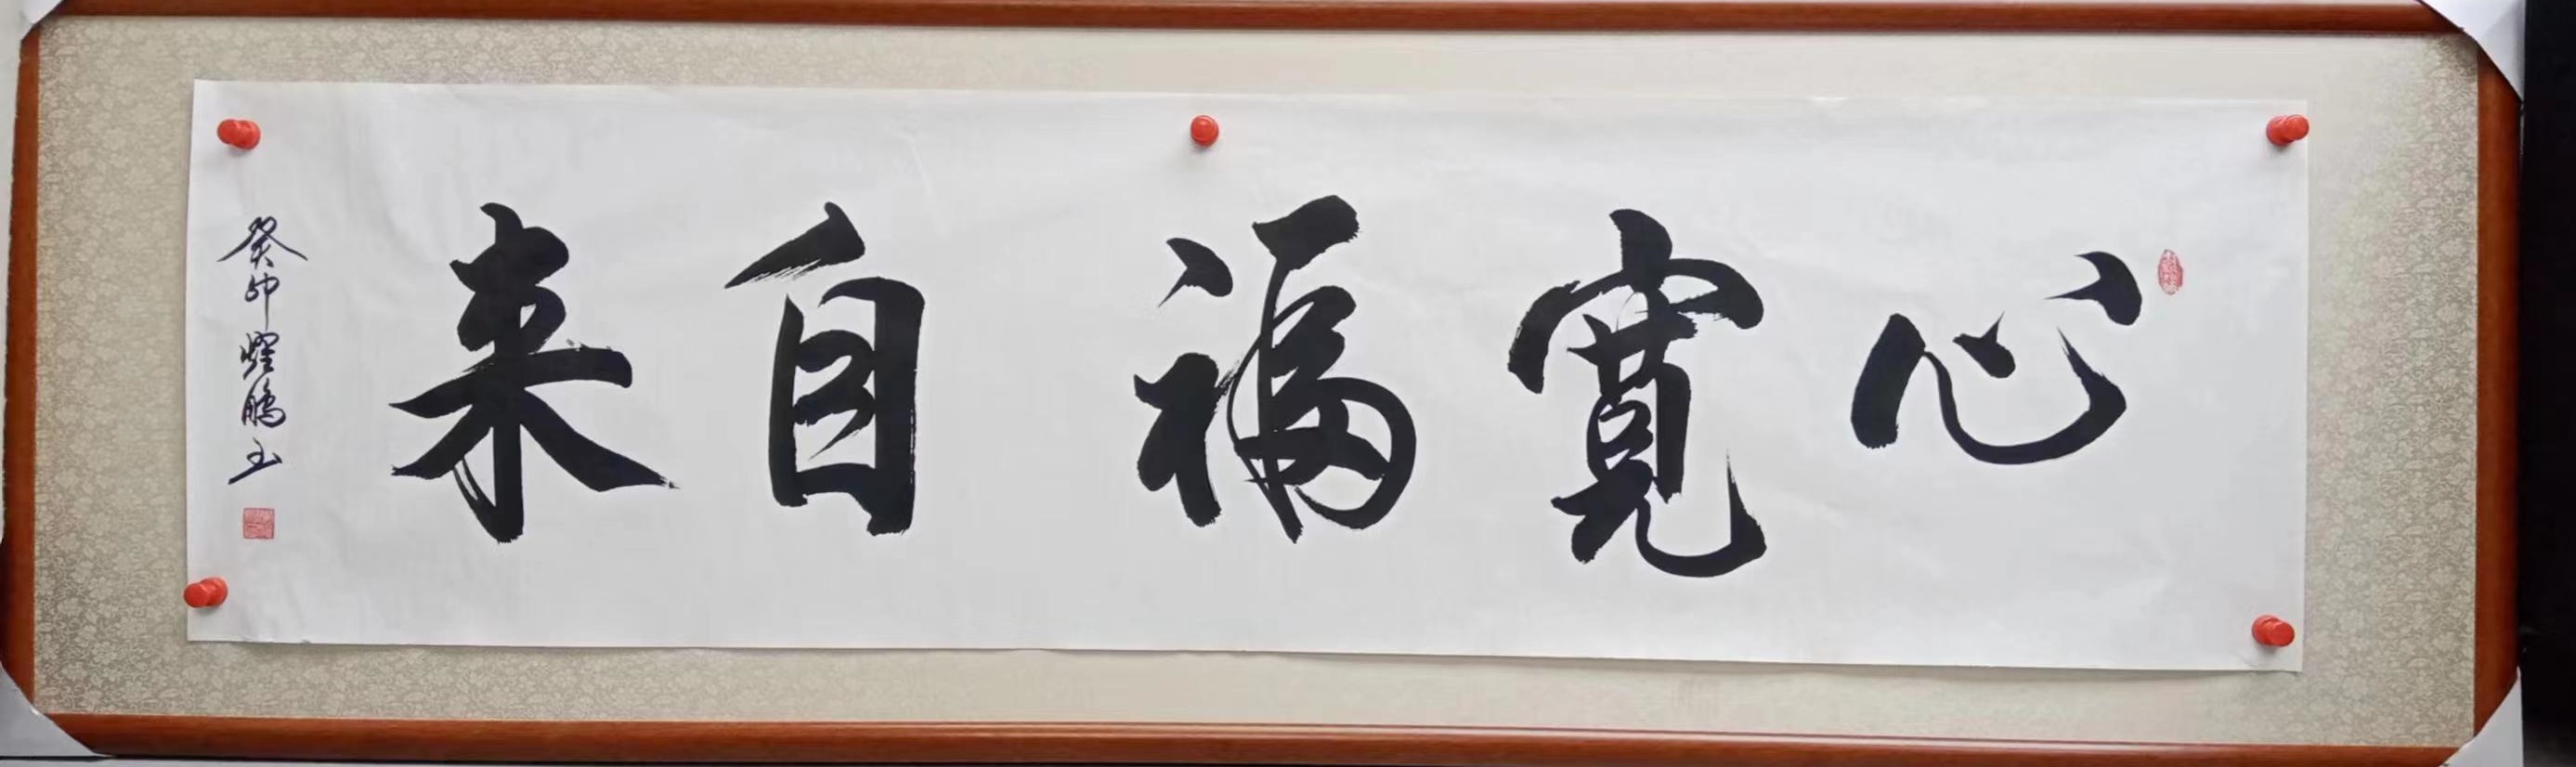 心寬福自来
癸卯耀鵬书